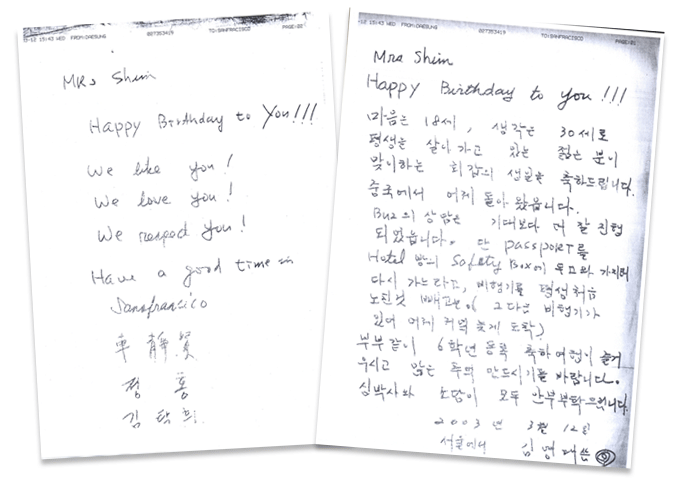 -12 15:43 WED FROM:DAESUNG 027353419 TO:SANFRACISCO
MRs Shim
Happy Birthday to You!!!
We like you!
We love you!
We respect you!
Have a good time in
Sanfrancico
車 靜
정 홍
김
-12 15:43 WED FROM:DAESUNG 027353419 TO:SANFRACISCO PAGE:01
Mrs Shim
Happy Birthday to you!!!
마음은 18세, 생각은 30세로
평생을 살아가고 있는 젊은 분이
맞이하는 회갑의 생일을 축하드립니다.
중국에서 어제 돌아 왔읍니다.
의 상담은 기대보다 더 잘 진행
되었읍니다. 단 passport를
Hotel 방의 Safety Box에 두고와 가지러
다시 가느라고, 비행기를 평생처음
노친것 빼고는 (그 다음 비행기가
있어 어제 저녁 늦게 도착)
부부같이 6학년 등록 축하여행이 즐거
우시고 많은 추억 만드시기를 바랍니다.
심박사와 소담이 모두 안부부탁드립니다
2003년 3월 12일
서울에서